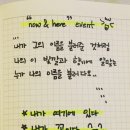 "now & here" event
내가 그의 이름을 불러준 것처럼
나의 이 빛깔과 향기에 알맞는
누가 나의 이름을 불러다오..
* 내가 여기에 있다
* 내가